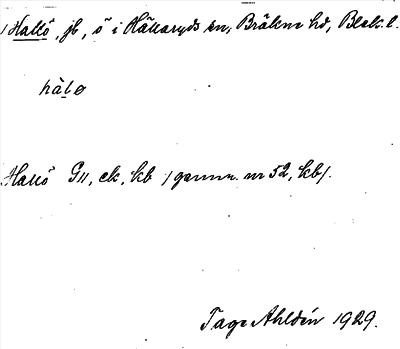 Hallö, jb, ö i Hällaryds sn, Bräkne hd, Blek. l.
hàlø
Hallö G11, ek, kb (gamm. nr 52, kb).
Tage Ahldén 1929.